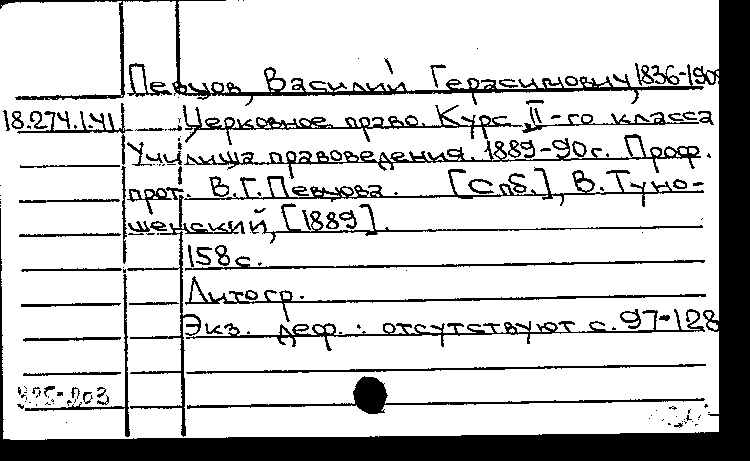 Певцов, Василий Герасимович, 1836-190
18.274.1.41 Церковное право. Курс II-го класса
Училища правоведения. 1889-90г. Проф.
прот. В.Г.Певцова. [Спб.], В.Туно-
шенский, [1889].
158 с.
Литогр.
Экз. деф.: отсутствуют с. 97-128